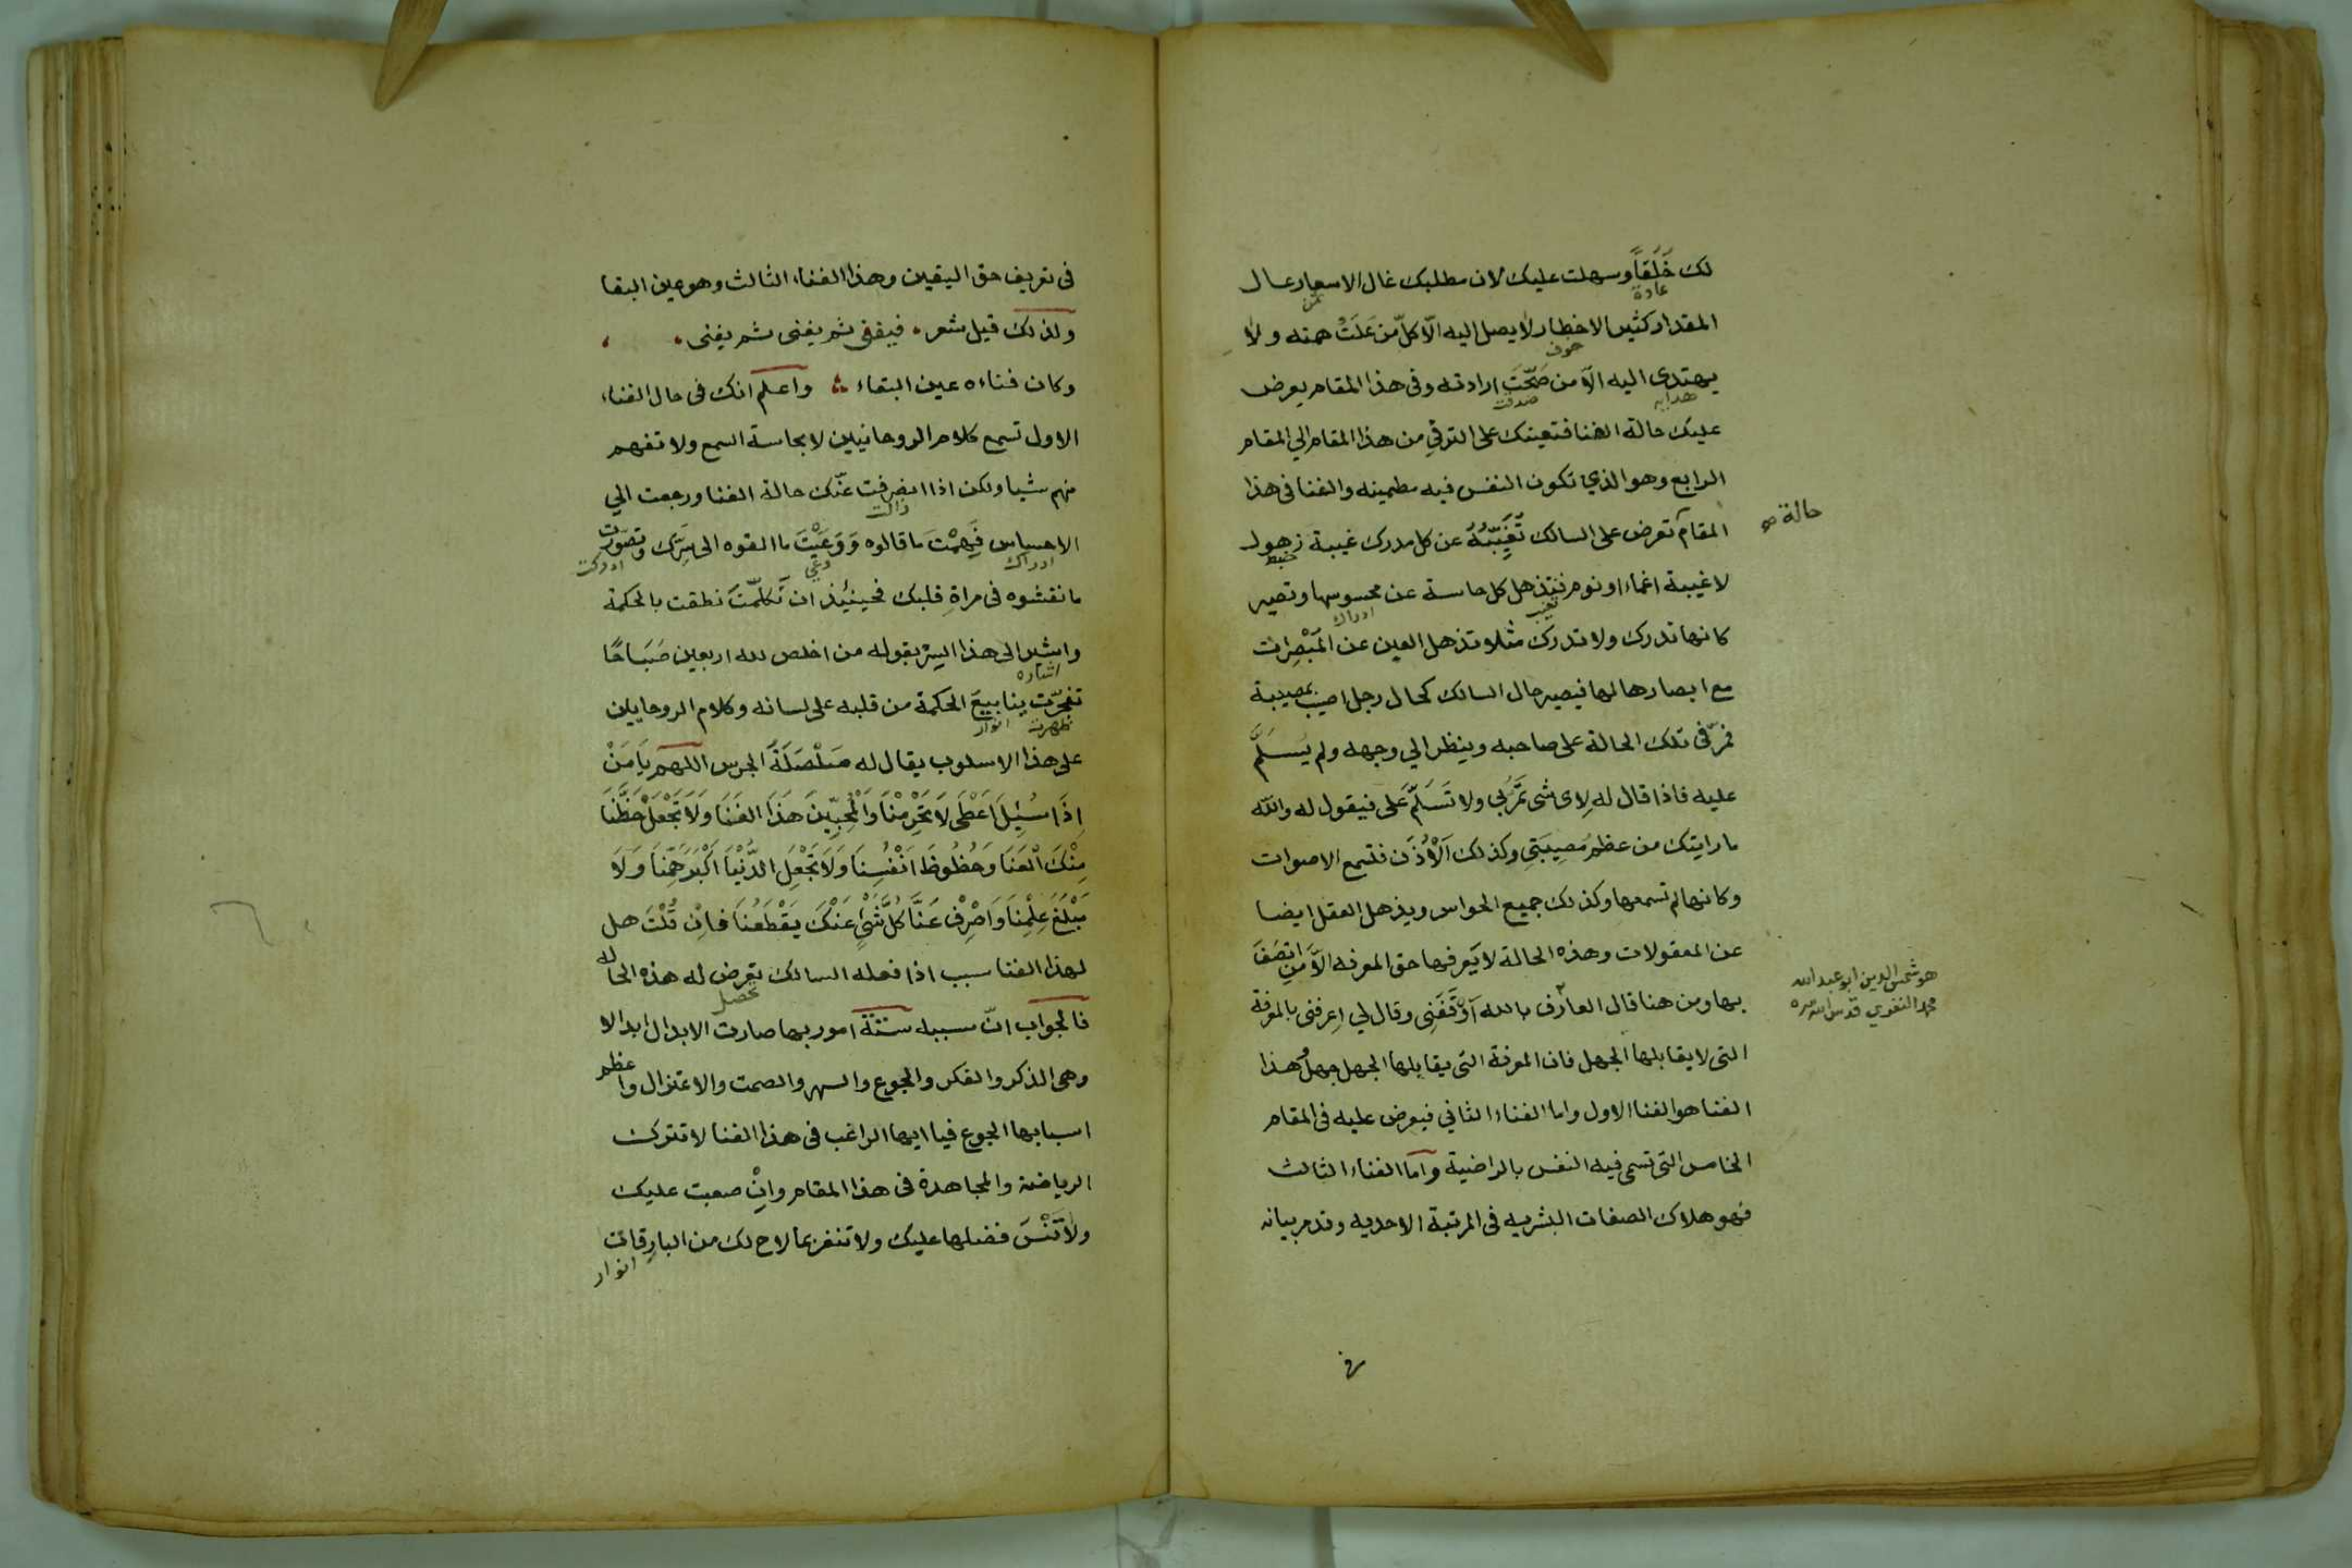 لك خَلَقاً وسهلت عليك لان مطلبك غال الاسعار عال
عادة
ثمن
المقدار كثير الاخطار لا يصل اليه الّا كلّ من عَلَتْ همته ولا
خوف
يهتدى اليه الّا من صَحّتَ ارادته وفى هذا المقام يعرض
هدايه
صدقت
عليك حالة الفنا فتعينك على الترقي من هذا المقام الي المقام
الرابع وهو الذي تكون النفس فيه مطمينه والفنا فى هذا
المقام تعرض على السالك تُغَيِّبُهُ عن كل مدرك غيبة زهول
حالة صح
لا غيبة اغماء او نوم فتذهل كل حاسة عن محسوسها وتصير
تغيب
ادراك
كانها تدرك ولا تدرك مثلا تذهل العين عن المَبْصِرات
مع ابصارها لها فيصير حال السالك كحال رجل اصيب بمصيبة
فمرّ فى تلك الحالة على صاحبه وينظر الي وجهه ولم يُسَلِّمْ
عليه فاذا قال له لِاى شى تَمُرّ بي ولا تَسَلِّمْ عَلى فيقول له والله
ما رايتك من عظم مُصِيبَتِي وكذلك اَلْاُذَن فتسمع الاصوات
وكانها لم تسمعها وكذلك جميع الحواس ويذهل العقل ايضا
عن المعقولات وهذه الحالة لا يَعرفها حق المعرفه الّا من اتصَفَ
بها ومن هنا قال العارف بالله اَوْقَفَنِى وقال لي اِعرفنى بالمعرفة
هو شمس الدين ابو عبد الله
محمد النفري قدس الله سره
التى لا يقابلها الجهل فان المعرفة التى يقابلها الجهل جهل وهذا
الفنا هو الفنا الاول واما الفناء الثاني فيعرض عليه فى المقام
الخامس التى تسمى فيه النفس بالراضية وامّا الفناء الثالث
فهو هلاك الصفات البشريه فى المرتبة الاحديه وقد مر بيانه
فى
فى تعريف حق اليقين وهذا الفناء الثالث وهو عين البقا
ولذلك قيل شعر ، فيفنى ثم يفنى ثم يفنى ،
وكان فناءه عين البقاء ؞ واعلم انك فى حال الفناء
الاول تسمع كلام الروحانيين لا بحاسة السمع ولا تفهم
منهم شيا ولكن اذا انصرفت عنّك حالة الفنا ورجعت الي
زالت
الاحساس فَهِمْتَ ما قالوه وَوَعَيْتَ ما القوه الى سَرِّك وتصَوّرت
ادراك
ادركت
ما نقشوه فى مراةِ قلبك فحينئِذ ان تَكلَّمْتَ نطقت بالحكمة
واشير الى هذا السِرّ بقوله من اخلص لله اربعين صَبَاحًا
اشاره
تفجّرَت ينابيعَ الحكمة من قلبه على لسانه وكلام الروحايين
ظهرت
انوار
على هذا الاسلوب يقال له صَلْصَلَةَ الجرس اللهم يَا مَنْ
اِذَا سُئِلَ اَعْطَى لَا تَحْرِمْنَا وَالْمُحِبِّينَ هَذَا الفَنَا وَلَا تَجْعَلْ حَظَّنَا
مِنْكَ الْعَنَا وَحُظُوظَ اَنْفُسِنَا وَلَا تَجْعَلِ الدُّنْيَا اَكْبَرَ هَمِّنَا وَلَا
مَبْلَغَ عِلْمِنَا وَاصْرِفْ عَنَّا كُلَّ شَيْءٍ عَنْكَ يَقْطَعُنَا فاِنْ قُلْتَ هل
لهذا الفنا سبب اذا فعله السالك تعرض له هذه الحاله
تحصل
فالجواب انّ سببه ستّة امور بها صارت الابدال ابدالا
وهى الذكر والفكر والجوع والسهر والصمت والاعتزال واعظم
اسبابها الجوع فيا ايها الراغب فى هذا الفنا لا تترك
الرياضة والمجاهدة فى هذا المقام وانْ صعبت عليك
ولا تَنْسَ فضلها عليك ولا تنغر بما لاح لك من البارقات
انوار